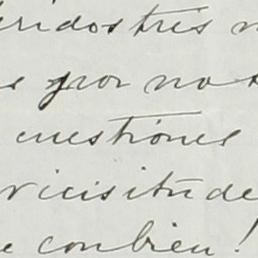 eridos tres n
s por not
cuestione
vicisitude
e conbien!